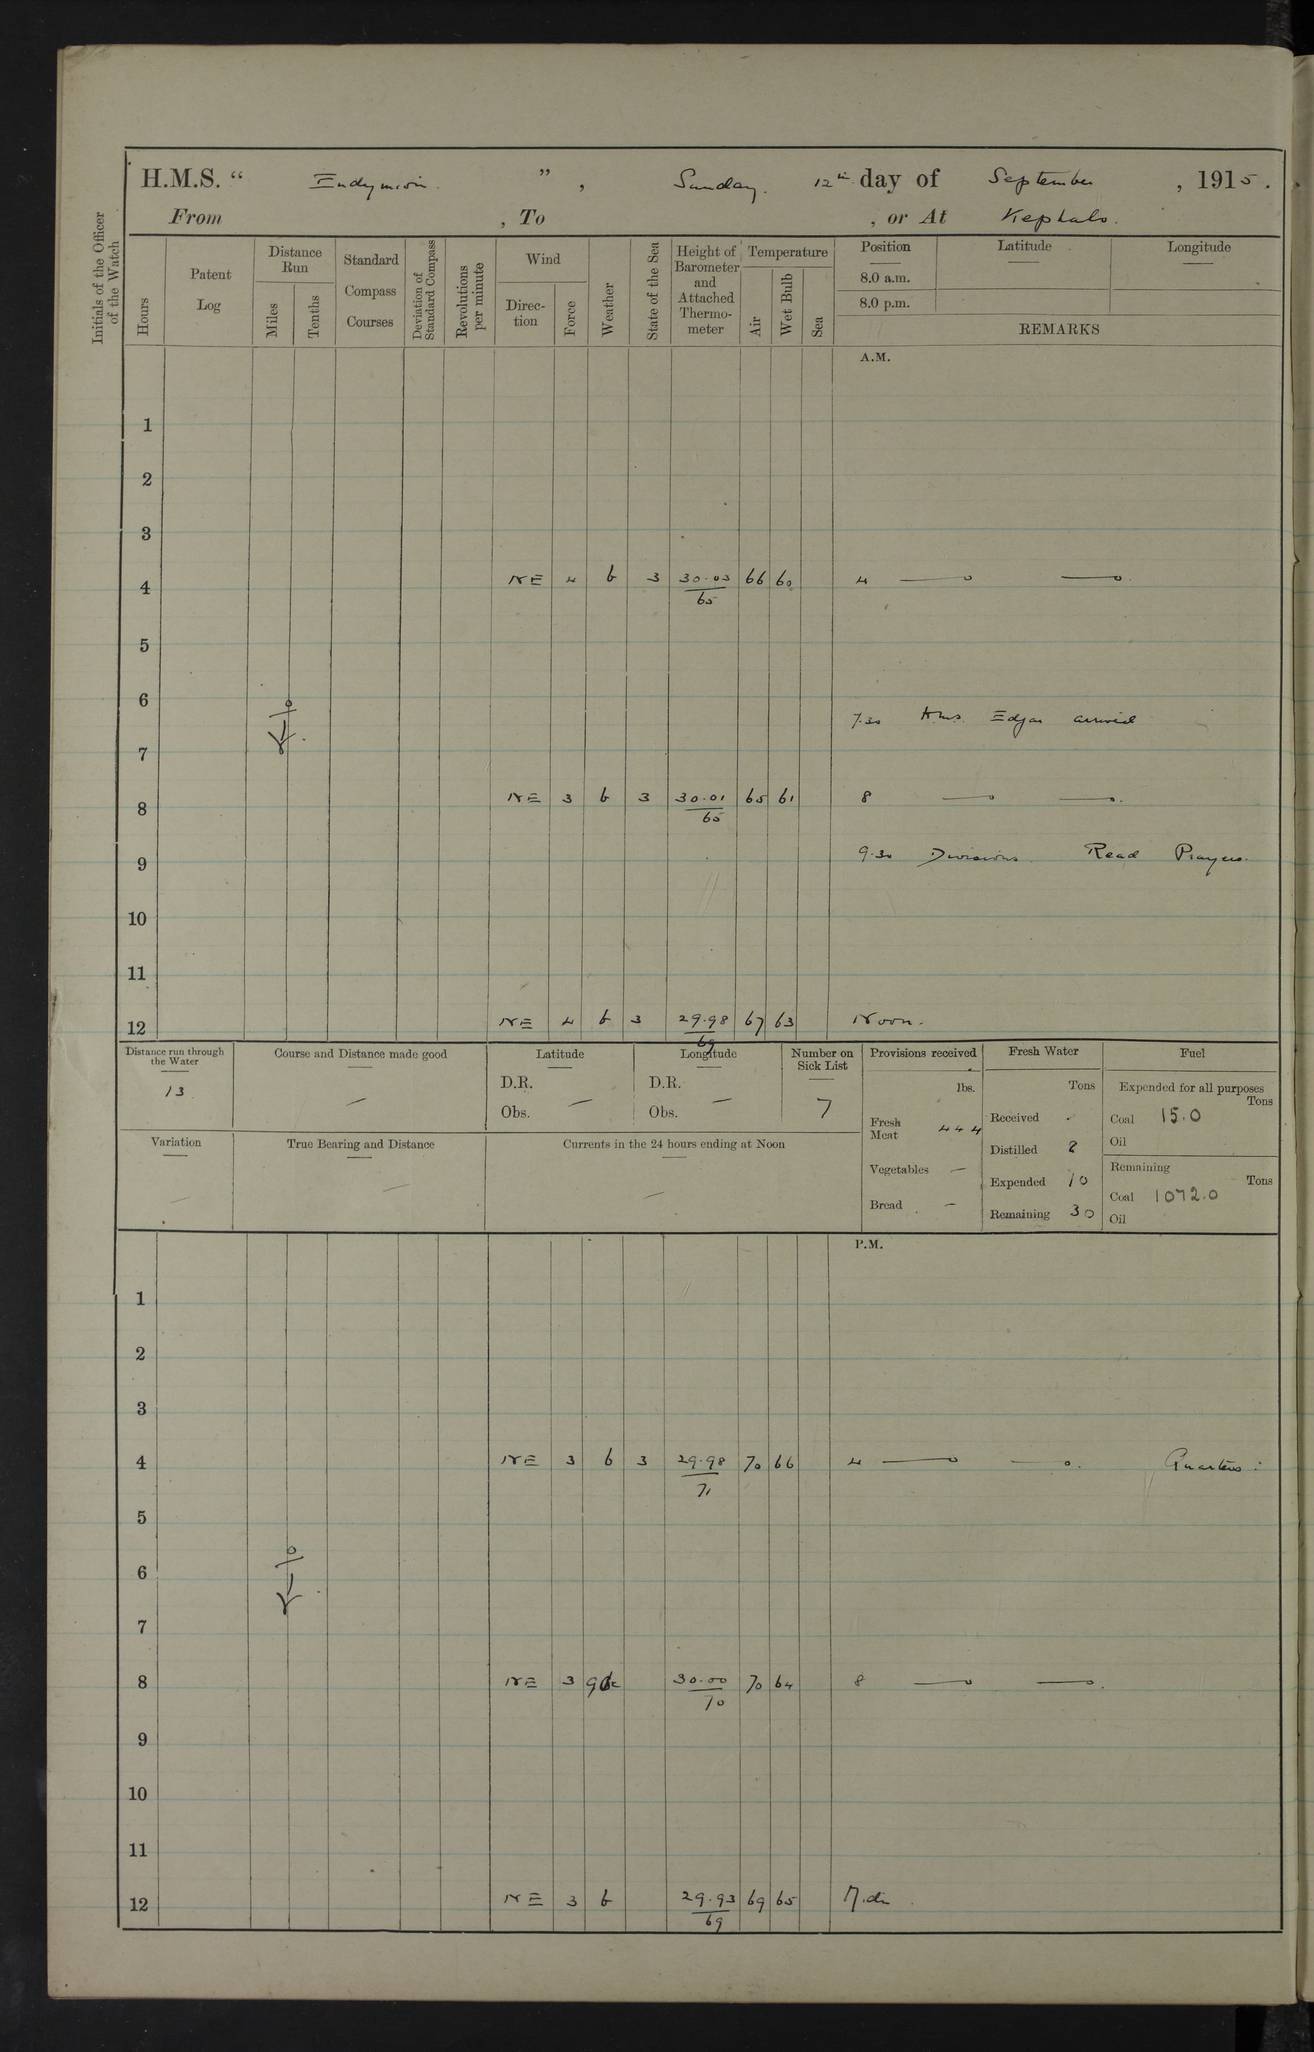 H.M.S. “ Endymion. ” , Sunday. 12th day of September , 1915.
From , To , or At Kephalo.
Initials of the Officer of the Watch
Hours
Patent Log
Distance Run
Miles
Tenths
Standard Compass Courses
Deviation of Standard Compass
Revolutions per minute
Wind
Direction
Force
Weather
State of the Sea
Height of Barometer and Attached Thermometer
Temperature
Air
Wet Bulb
Sea
Position Latitude Longitude
8.0 a.m.
8.0 p.m.
REMARKS
A.M.
1
2
3
4 NE 4 b 3 30.03 66 60 4
65
5
6
7.30 H.M.S. Edgar arrived
7
8 NE 3 b 3 30.01 65 61 8
65
9 9.30 Divisions. Read Prayers.
10
11
12 NE 4 b 3 29.98 67 63 Noon.
69
Distance run through the Water
13
Course and Distance made good
—
Latitude
D.R.
Obs. —
Longitude
D.R.
Obs. —
Number on Sick List
7
Variation
—
True Bearing and Distance
—
Currents in the 24 hours ending at Noon
—
Provisions received
lbs.
Fresh Meat 444
Vegetables —
Bread —
Fresh Water
Tons
Received -
Distilled 8
Expended 10
Remaining 30
Fuel
Expended for all purposes
Tons
Coal 15.0
Oil
Remaining
Tons
Coal 1072.0
Oil
P.M.
1
2
3
4 NE 3 b 3 29.98 70 66 4 Quarters:
71
5
6
7
8 NE 3 30.00 70 64 8
70
9
10
11
12 NE 3 b 29.93 69 65 Mdn
69